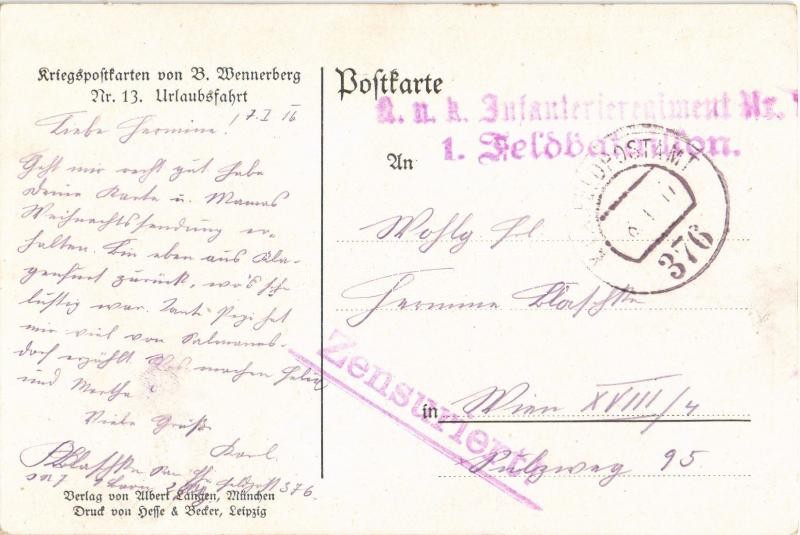 Kriegspostkarten von B. Wennerberg
Nr. 13. Urlaubsfahrt
7.I 16
Liebe Hermine!
Geht mir recht gut habe
Deine Karte u. Mamas
Weihnachtssendung er-
halten. Bin eben aus Kla-
genfurt zurück, wo's sehr
lustig war. Tante Pepi hat
mir viel von Salmanns-
dorf erzählt Was machen
und Martha
Viele Grüße
Karl.
Blaschke Feldpost 376
Verlag von Albert Langen, München
Druck von Hesse & Becker, Leipzig
Postkarte
K. u. k. Infanterieregiment Nr.
1. Feldbataillon.
FELDPOSTAMT
376
An
Wohlg
Hermine Blaschke
Zensuriert
in Wien XVIII/4
Sulzweg 95